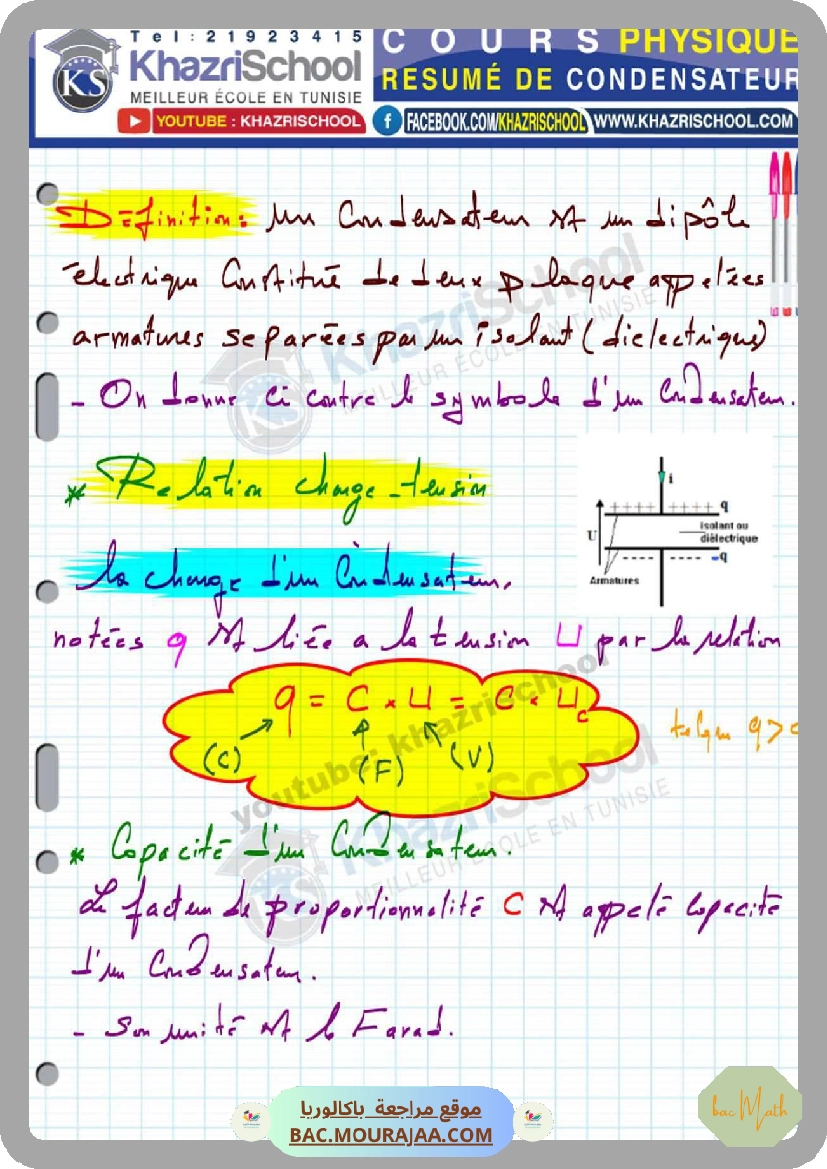 Tel:21923415
COURS PHYSIQUE
KhazriSchool
KS
RESUMÉ DE CONDENSATEUR
MEILLEUR ÉCOLE EN TUNISIE
YOUTUBE : KHAZRISCHOOL
FACEBOOK.COM/KHAZRISCHOOL
WWW.KHAZRISCHOOL.COM
Définition: un Condensateur est un dipôle
électrique Constitué de deux plaque appelées
armatures separées par un isolant (diclectrique)
- On donne ci contre le symbole d'un Condensateur.
* Relation charge-tension
i
+ + + + + + + q
U
Isolant ou
diélectrique
- - - - - - -q
Armatures
la charge d'un Condensateur,
notées q est liée a la tension U par la relation
q = C × U = C × Uc
tel que q>
(C) (F) (V)
* Capacité d'un Condensateur.
Le facteur de proportionnalité C est appelé capacité
d'un Condensateur.
- Son unité est le Farad.
KhazriSchool
MEILLEUR ÉCOLE EN TUNISIE
youtube: khazrischool
KhazriSchool
MEILLEUR ÉCOLE EN TUNISIE
bac Math
موقع مراجعة باكالوريا
BAC.MOURAJAA.COM